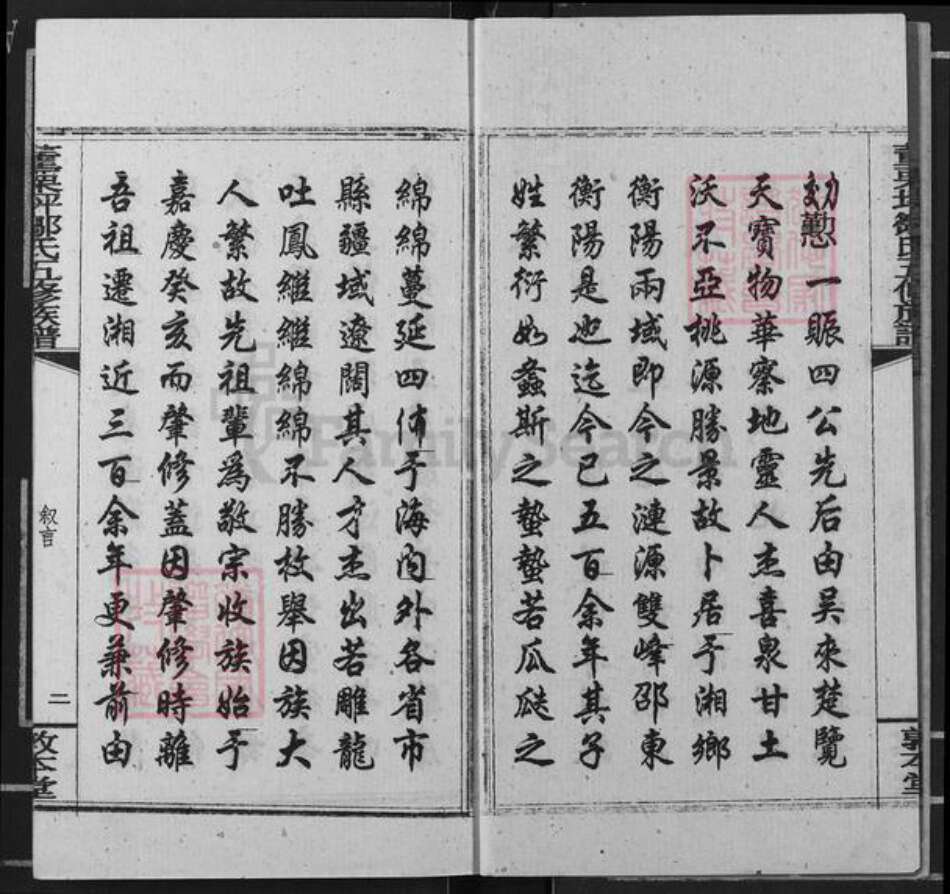 効勤懃一賑四公先后由吴來楚覽
天寶物華察地靈人杰喜泉甘土
沃不亞桃源勝景故卜居于湘鄉
衡陽兩域即今之漣源雙峰邵東
衡陽是也迄今已五百余年其子
姓繁衍如螽斯之蟄蟄若瓜瓞之
綿綿蔓延四佈于海内外各省市
縣疆域遼闊其人才杰出若雕龍
吐鳳繼繼綿綿不勝枚舉因族大
人繁故先祖輩爲敬宗收族始于
嘉慶癸亥而肇修蓋因肇修時離
吾祖遷湘近三百余年更兼前由
氏五修族譜
叙言
二
本堂
FamilySearch